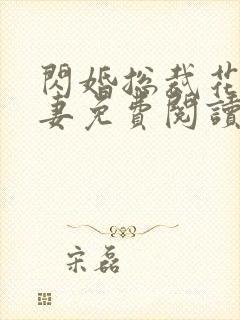 閃婚總裁花
妻免費閱讀
宋磊